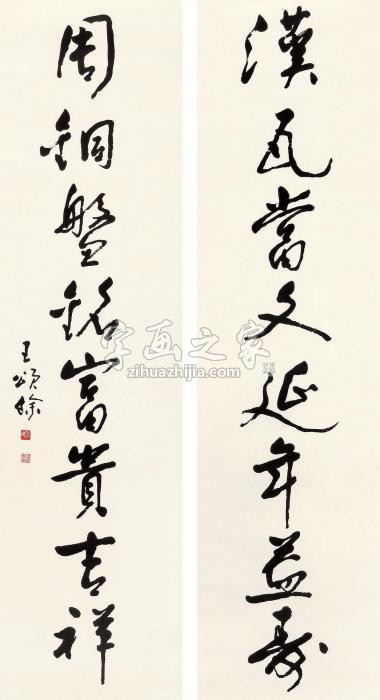 漢瓦當文延年益壽
周銅盤銘富貴吉祥
王頌餘
字画之家
zihuazhijia.com